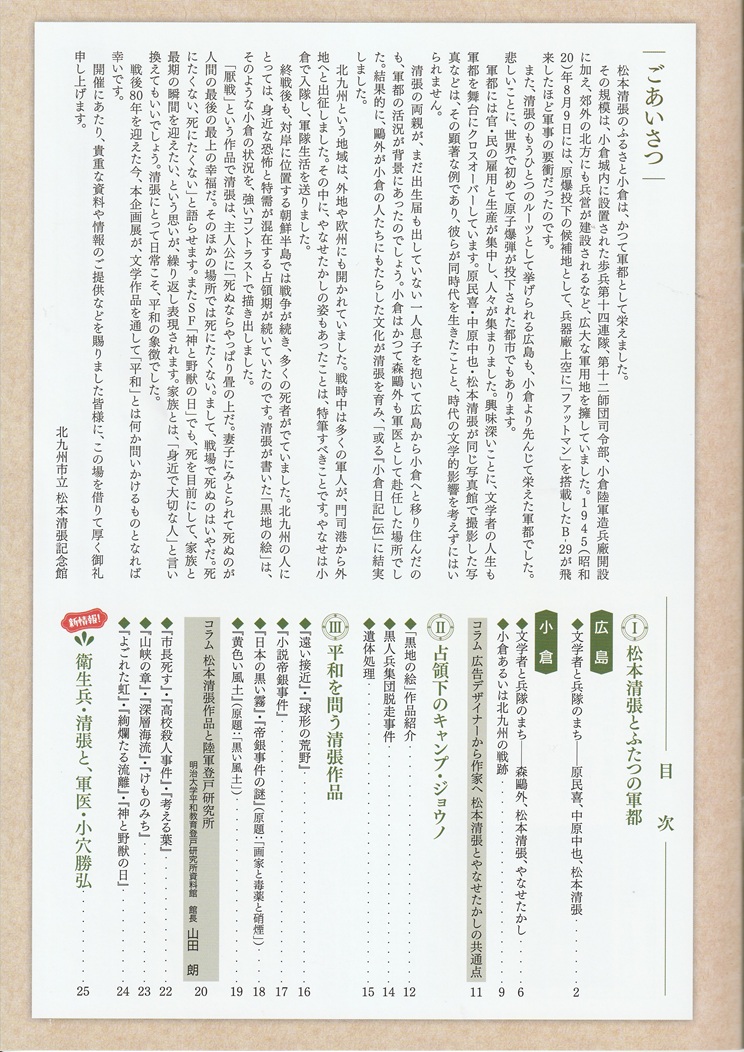 ごあいさつ
松本清張のふるさと小倉は、かつて軍都として栄えました。
その規模は、小倉城内に設置された歩兵第十四連隊、第十二師団司令部、小倉陸軍造兵廠開設
に加え、郊外の北方にも兵営が建設されるなど、広大な軍用地を擁していました。1945(昭和
20)年8月9日には、原爆投下の候補地として、兵器廠上空に「ファットマン」を搭載したB-29が飛
来したほど軍事の要衝だったのです。
また、清張のもうひとつのルーツとして挙げられる広島も、小倉より先んじて栄えた軍都でした。
悲しいことに、世界で初めて原子爆弾が投下された都市でもあります。
軍都には官・民の雇用と生産が集中し、人々が集まりました。興味深いことに、文学者の人生も
軍都を舞台にクロスオーバーしています。原民喜・中原中也・松本清張が同じ写真館で撮影した写
真などは、その顕著な例であり、彼らが同時代を生きたことと、時代の文学的影響を考えずにはい
られません。
清張の両親が、まだ出生届も出していない一人息子を抱いて広島から小倉へと移り住んだの
も、軍都の活況が背景にあったのでしょう。小倉はかつて森鷗外も軍医として赴任した場所でし
た。結果的に、鷗外が小倉の人たちにもたらした文化が清張を育み、「或る『小倉日記』伝」に結実
しました。
北九州という地域は、外地や欧州にも開かれていました。戦時中は多くの軍人が、門司港から外
地へと出征しました。その中に、やなせたかしの姿もあったことは、特筆すべきことです。やなせは小
倉で入隊し、軍隊生活を送りました。
終戦後も、対岸に位置する朝鮮半島では戦争が続き、多くの死者がでていました。北九州の人に
とっては、身近な恐怖と特需が混在する占領期が続いていたのです。清張が書いた「黒地の絵」は、
そのような小倉の状況を、強いコントラストで描き出しました。
「厭戦」という作品で清張は、主人公に「死ぬならやっぱり畳の上だ。妻子にみとられて死ぬのが
人間の最後の最上の幸福だ。そのほかの場所では死にたくない。まして、戦場で死ぬのはいやだ。死
にたくない、死にたくない」と語らせます。またSF「神と野獣の日」でも、死を目前にして、家族と
最期の瞬間を迎えたい、という思いが、繰り返し表現されます。家族とは、「身近で大切な人」と言い
換えてもいいでしょう。清張にとって日常こそ、平和の象徴でした。
戦後80年を迎えた今、本企画展が、文学作品を通して「平和」とは何か問いかけるものとなれば
幸いです。
開催にあたり、貴重な資料や情報のご提供などを賜りました皆様に、この場を借りて厚く御礼
申し上げます。
北九州市立 松本清張記念館
目 次
Ⅰ 松本清張とふたつの軍都
広島
◆文学者と兵隊のまち――原民喜、中原中也、松本清張 2
小倉
◆文学者と兵隊のまち――森鷗外、松本清張、やなせたかし 6
◆小倉あるいは北九州の戦跡 9
コラム 広告デザイナーから作家へ 松本清張とやなせたかしの共通点 11
Ⅱ 占領下のキャンプ・ジョウノ
◆「黒地の絵」作品紹介 12
◆黒人兵集団脱走事件 14
◆遺体処理 15
Ⅲ 平和を問う清張作品
◆『遠い接近』・『球形の荒野』 16
◆『小説帝銀事件』 17
◆『日本の黒い霧』・『帝銀事件の謎』(原題:「画家と毒薬と硝煙」) 18
◆『黄色い風土』(原題:「黒い風土」) 19
コラム 松本清張作品と陸軍登戸研究所
明治大学平和教育登戸研究所資料館 館長 山田 朗 20
◆『市長死す』・『高校殺人事件』・『考える葉』 22
◆『山峡の章』・『深層海流』・『けものみち』 23
◆『よごれた虹』・『絢爛たる流離』・『神と野獣の日』 24
新情報!
衛生兵・清張と、軍医・小穴勝弘 25